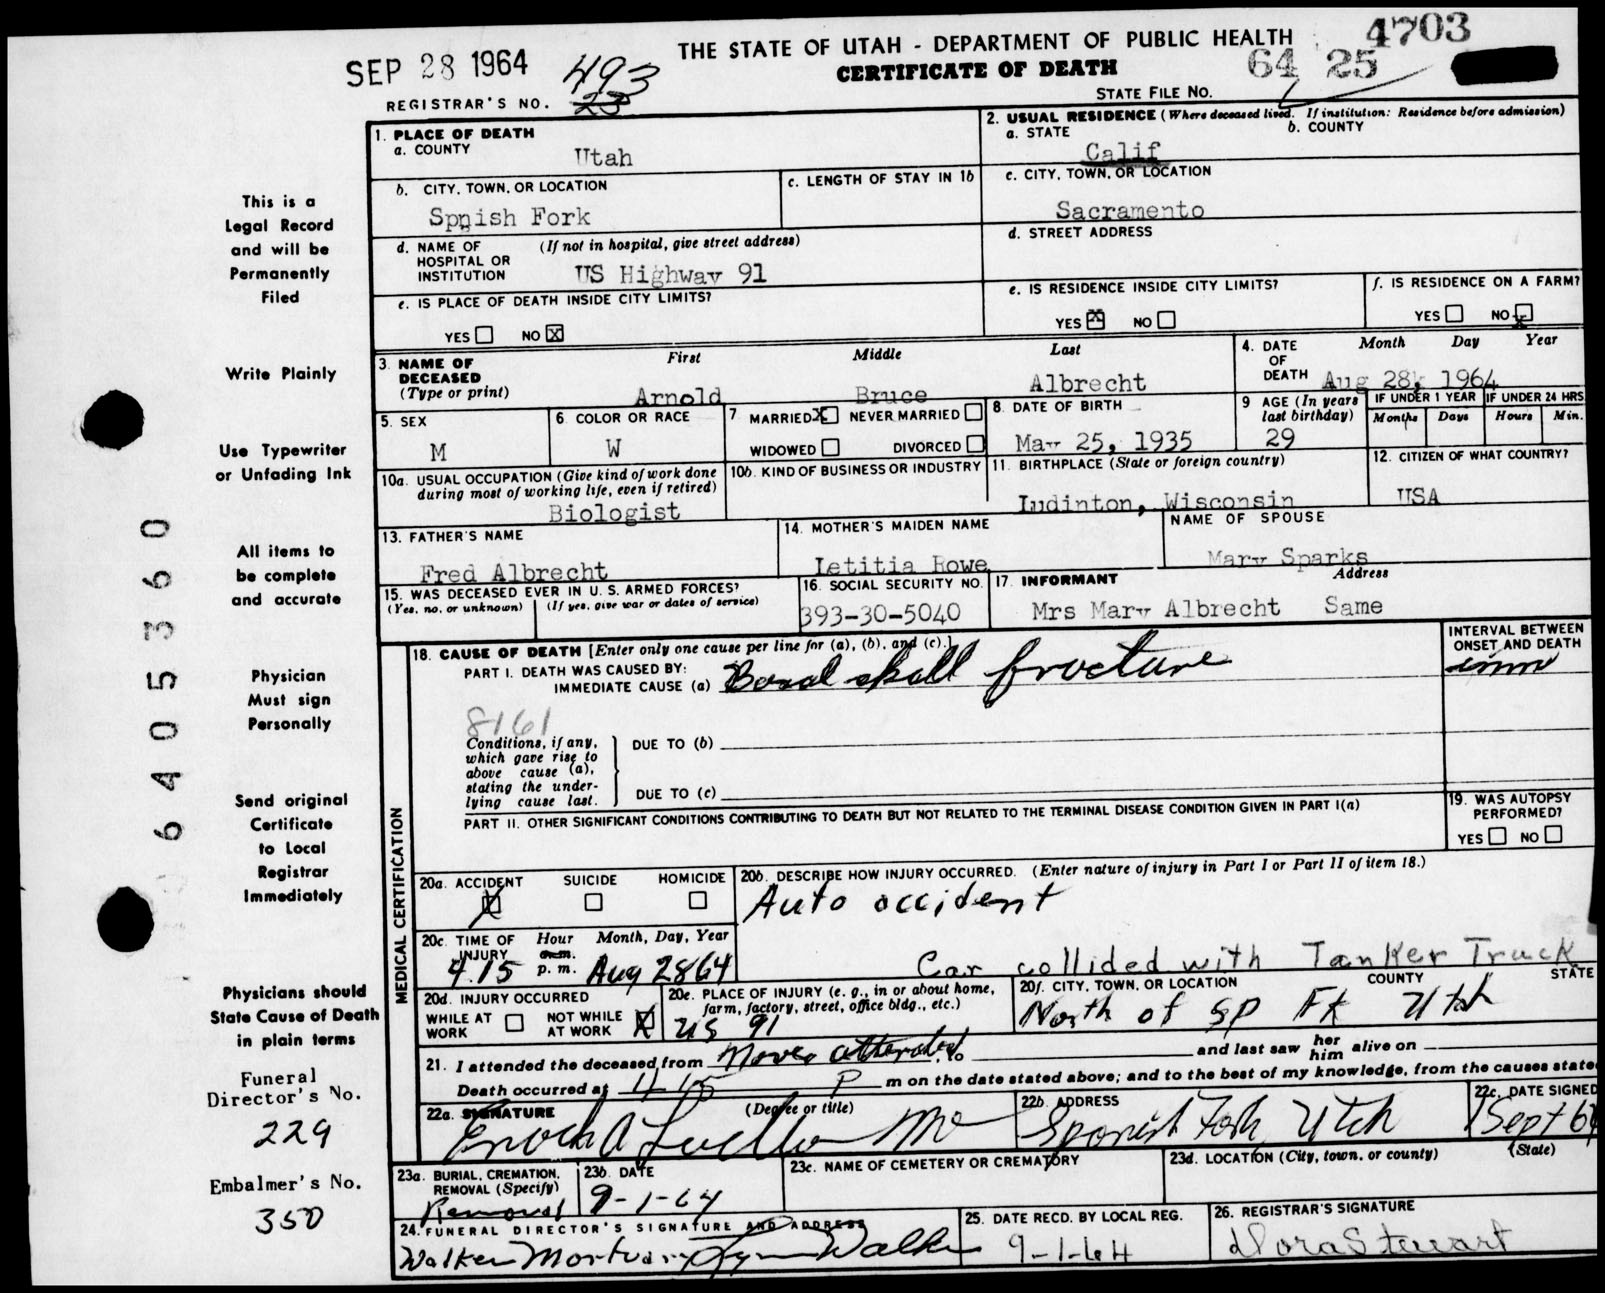 SEP 28 1964
493
23
REGISTRAR'S NO.
THE STATE OF UTAH - DEPARTMENT OF PUBLIC HEALTH
CERTIFICATE OF DEATH
4703
64 25
STATE FILE NO.
1. PLACE OF DEATH
a. COUNTY
Utah
2. USUAL RESIDENCE (Where deceased lived. If institution: Residence before admission)
a. STATE
b. COUNTY
Calif
b. CITY, TOWN, OR LOCATION
Spnish Fork
c. LENGTH OF STAY IN 1b
c. CITY, TOWN, OR LOCATION
Sacramento
d. NAME OF HOSPITAL OR INSTITUTION
(If not in hospital, give street address)
US Highway 91
d. STREET ADDRESS
e. IS PLACE OF DEATH INSIDE CITY LIMITS?
YES NO X
e. IS RESIDENCE INSIDE CITY LIMITS?
YES X NO
f. IS RESIDENCE ON A FARM?
YES NO X
3. NAME OF DECEASED
(Type or print)
First Middle Last
Arnold Bruce Albrecht
4. DATE OF DEATH
Month Day Year
Aug 28, 1964
5. SEX
M
6 COLOR OR RACE
W
7 MARRIED X NEVER MARRIED
WIDOWED DIVORCED
8. DATE OF BIRTH
May 25, 1935
9 AGE (In years last birthday)
29
IF UNDER 1 YEAR
Months Days
IF UNDER 24 HRS.
Hours Min.
10a. USUAL OCCUPATION (Give kind of work done during most of working life, even if retired)
Biologist
10b. KIND OF BUSINESS OR INDUSTRY
11. BIRTHPLACE (State or foreign country)
Ludinton, Wisconsin
12. CITIZEN OF WHAT COUNTRY?
USA
13. FATHER'S NAME
Fred Albrecht
14. MOTHER'S MAIDEN NAME
Letitia Rowe
NAME OF SPOUSE
Mary Sparks
15. WAS DECEASED EVER IN U. S. ARMED FORCES?
(Yes, no, or unknown) (If yes, give war or dates of service)
16. SOCIAL SECURITY NO.
393-30-5040
17. INFORMANT Address
Mrs Mary Albrecht Same
MEDICAL CERTIFICATION
18. CAUSE OF DEATH [Enter only one cause per line for (a), (b), and (c).]
PART I. DEATH WAS CAUSED BY:
IMMEDIATE CAUSE (a) Basal skull fracture
INTERVAL BETWEEN ONSET AND DEATH
imm
8161
Conditions, if any, which gave rise to above cause (a), stating the underlying cause last.
DUE TO (b)
DUE TO (c)
PART II. OTHER SIGNIFICANT CONDITIONS CONTRIBUTING TO DEATH BUT NOT RELATED TO THE TERMINAL DISEASE CONDITION GIVEN IN PART I(a)
19. WAS AUTOPSY PERFORMED?
YES NO
20a. ACCIDENT SUICIDE HOMICIDE
X
20b. DESCRIBE HOW INJURY OCCURRED. (Enter nature of injury in Part I or Part II of item 18.)
Auto accident
Car collided with Tanker Truck
20c. TIME OF INJURY
Hour Month, Day, Year
a.m.
p. m.
4.15 Aug 28 64
20d. INJURY OCCURRED
WHILE AT WORK NOT WHILE AT WORK X
20e. PLACE OF INJURY (e. g., in or about home, farm, factory, street, office bldg., etc.)
US 91
20f. CITY, TOWN, OR LOCATION COUNTY STATE
North of SP Fk Utah
21. I attended the deceased from Never attended, to and last saw her him alive on
Death occurred at P m on the date stated above; and to the best of my knowledge, from the causes state
22a. SIGNATURE (Degree or title)
Enoch A MD
22b. ADDRESS
Spanish Fork Utah
22c. DATE SIGNED
1 Sept 64
23a. BURIAL, CREMATION, REMOVAL (Specify)
Removal
23b. DATE
9-1-64
23c. NAME OF CEMETERY OR CREMATORY
23d. LOCATION (City, town, or county) (State)
24. FUNERAL DIRECTOR'S SIGNATURE AND ADDRESS
Walker Mortuary Lynn Walker
25. DATE RECD. BY LOCAL REG.
9-1-64
26. REGISTRAR'S SIGNATURE
Dora Stewart
This is a
Legal Record
and will be
Permanently
Filed
Write Plainly
Use Typewriter
or Unfading Ink
All items to
be complete
and accurate
Physician
Must sign
Personally
Send original
Certificate
to Local
Registrar
Immediately
Physicians should
State Cause of Death
in plain terms
Funeral
Director's No.
229
Embalmer's No.
350
6405360